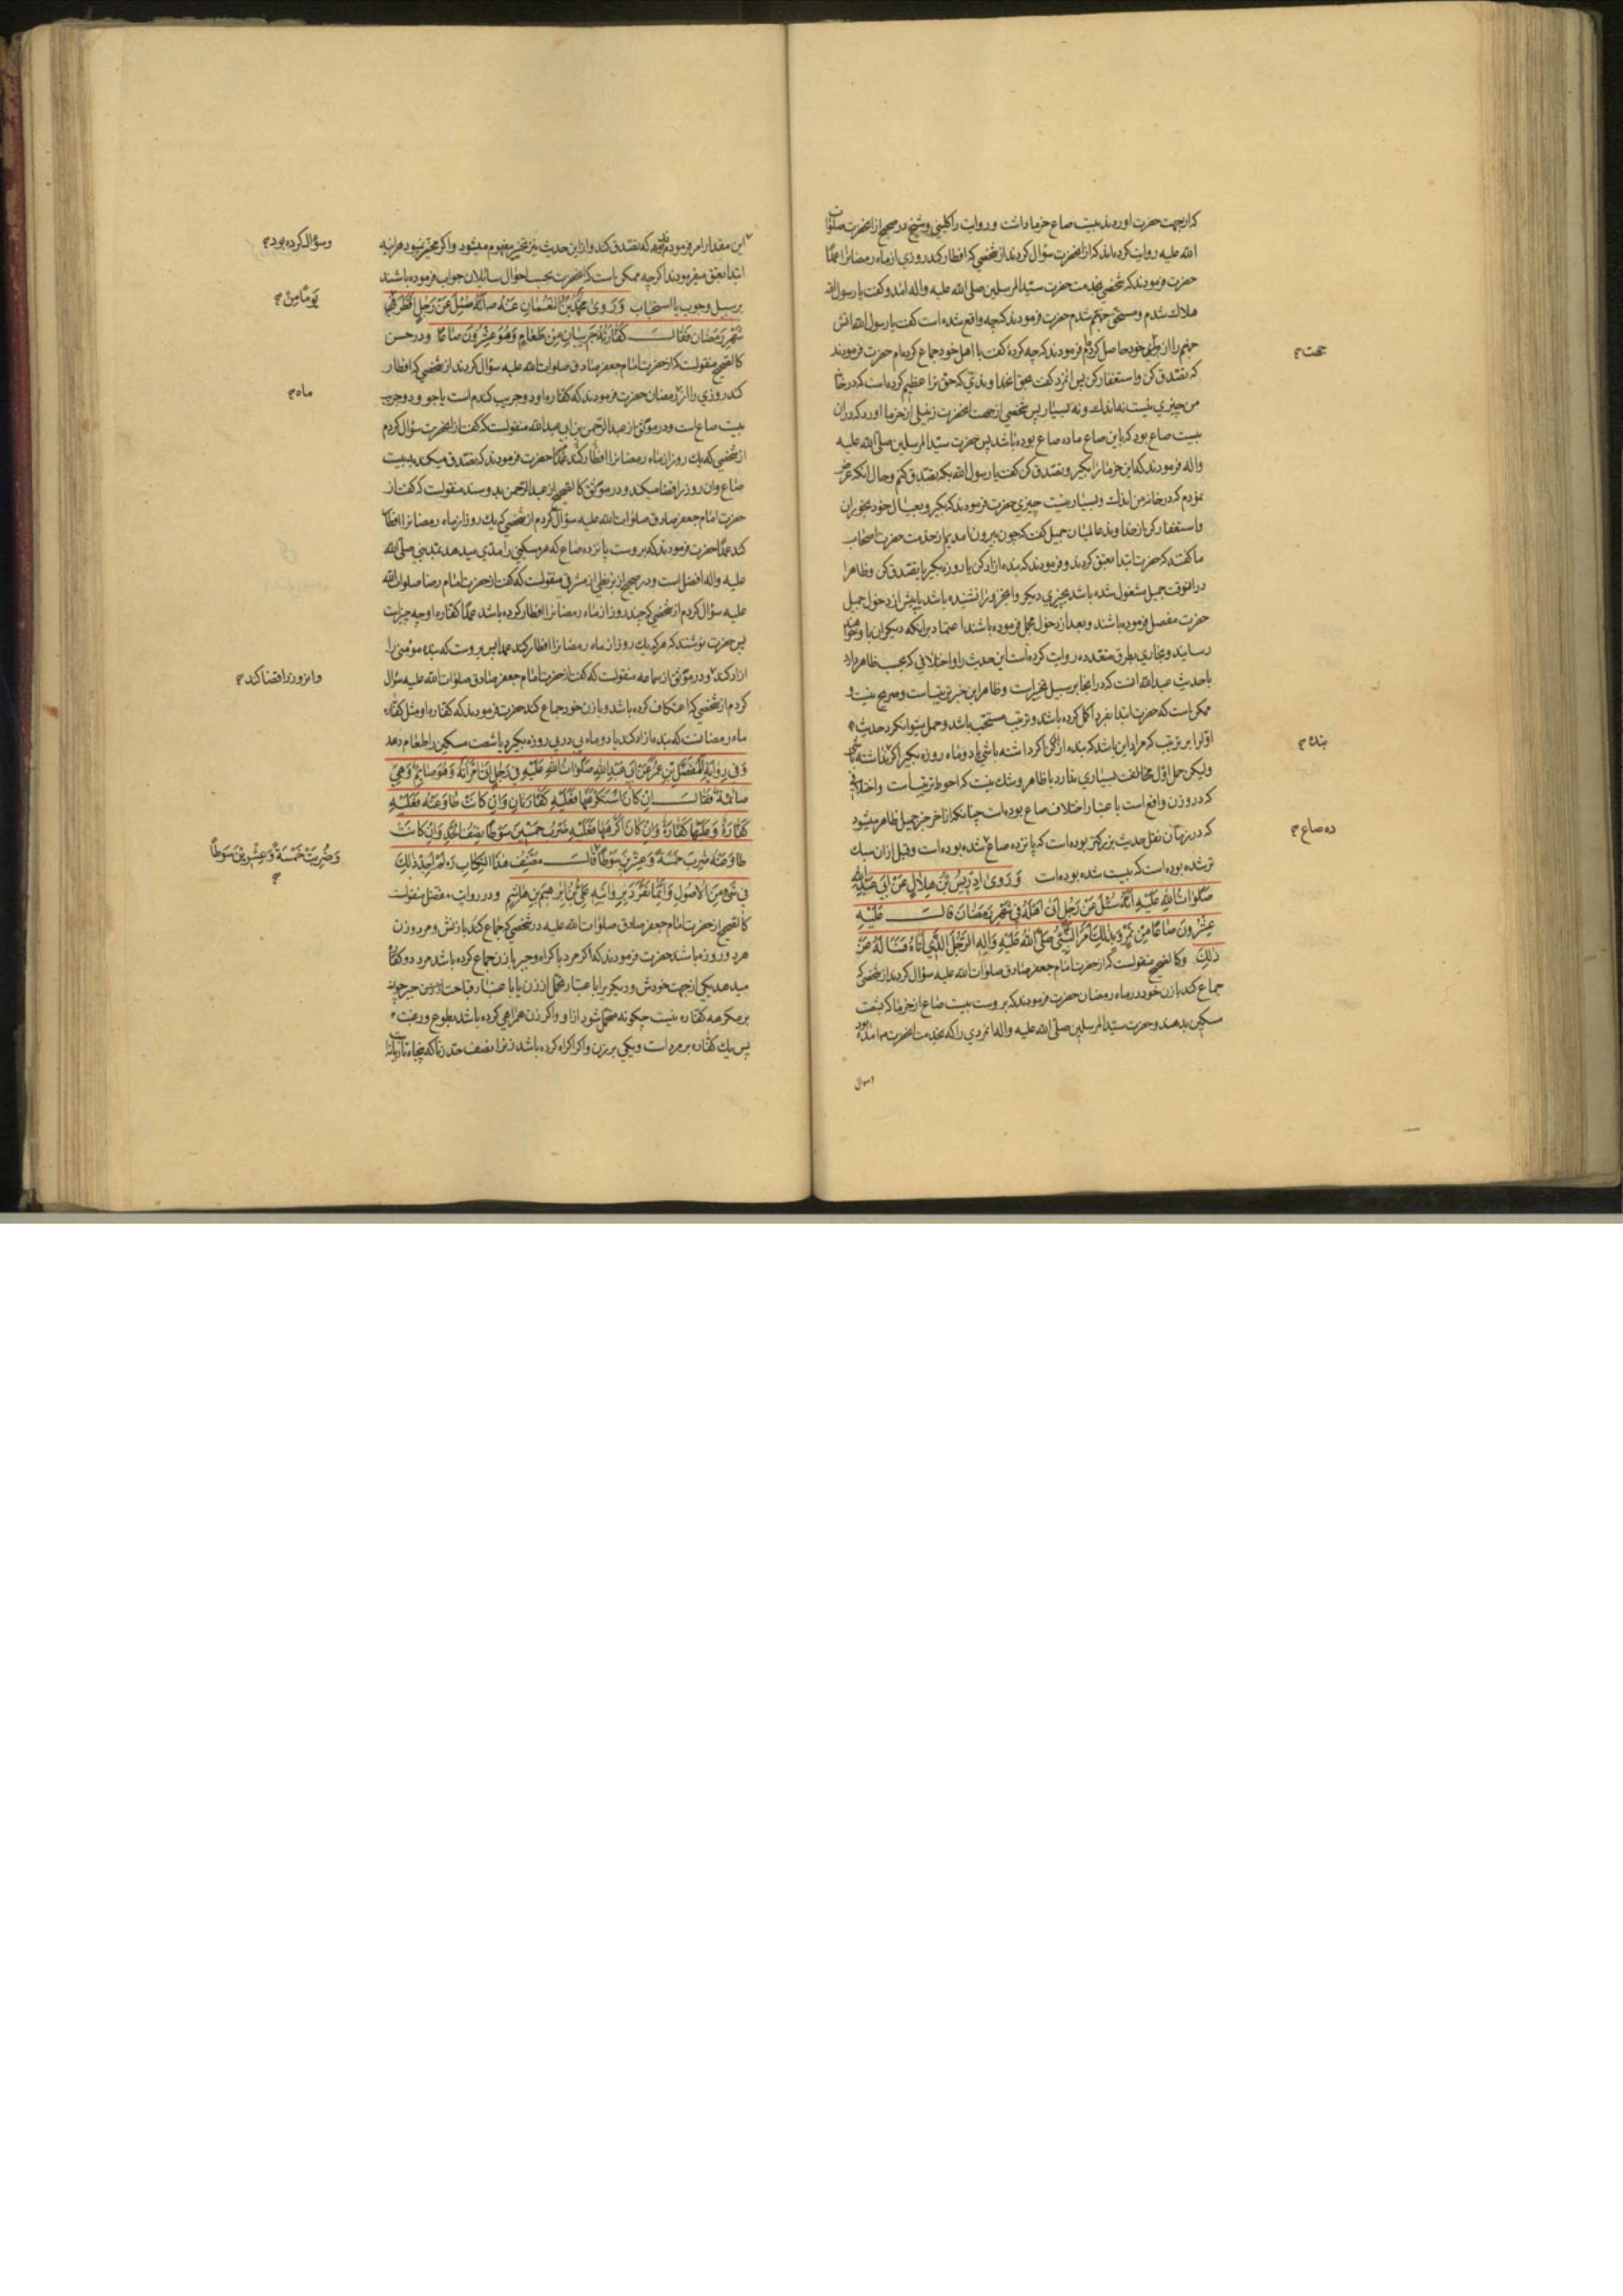 که از جهت حضرت اوردند بیست صاع خرما داشت و روایت را کلینی و شیخ در صحیح از انحضرت صلوات
الله علیه روایت کرده‌اند که از انحضرت سؤال کردند از شخصی که افطار کند روزی از ماه رمضانرا عمدًا
حضرت فرمودند که شخصی بخدمت حضرت سیّد المرسلین صلی الله علیه واله امد و کفت یا رسول الله
هلاك شدم و مستحق جهنّم شدم حضرت فرمودند که چه واقع شده است کفت یا رسول الله اتش
جهنم را از برای خود حاصل کردم فرمودند که چه کردهٔ کفت با اهل خود جماع کرده‌ام حضرت فرمودند
که تصدّق کن و استغفار کن پس انمرد کفت بحق انخداوندی که حق ترا عظیم کرده است که در خانهٔ
من چیزی نیست نه اندك و نه بسیار پس شخصی از جهت انحضرت زنبیلی از خرما اورد که دران
بیست صاع بود که باین صاع ما ده صاع بوده باشد پس حضرت سیّد المرسلین صلّی الله علیه
واله فرمودند که این خرمانرا بکیر و تصدق کن کفت یا رسول الله بکه تصدّق کنم و حال انکه عرض
نمودم که در خانهٔ من اندك و بسیار نیست چیزی حضرت فرمودند که بکیر و بعیال خود بخوران
و استغفار کن از خداوند عالمیان جمیل کفت که چون بیرون امدیم از خدمت حضرت اصحاب
ما کفتند که حضرت ابتدا بعتق کردند و فرمودند که بنده ازاد کن یا روزه بکیر یا تصدق کن و ظاهرا
درانوقت جمیل مشغول شده باشد بچیزی دیکر و انجزو را نشنیده باشد یا پیش از دخول جمیل
حضرت مفصل فرموده باشند و بعد از دخول مجمل فرموده باشند اعتماد برانکه دیکران باو خواهند
رسانید و بخاری بطرق متعدده روایت کرده است این حدیث را و اختلافی که بحسب ظاهر دارد
با حدیث عبدالله انست که در انجا بر سبیل تخییر است و ظاهر این خبر ترتیب است و صریح نیست و
ممکن است که حضرت ابتدا بفرد اکمل کرده باشد و ترتیب مستحب باشد و حمل میتوان کرد حدیث
اوّل را بر ترتیب که مراد این باشد که بنده ازاد کن اکر داشته باشی یا دو ماه روزه بکیر اکر نداشته باشی
ولیکن حمل اوّل مخالفت بسیاری ندارد با ظاهر و شك نیست که احوط ترتیب است و اختلافی
که در وزن واقع است باعتبار اختلاف صاع بوده است چنانکه از اخر خبر جمیل ظاهر میشود
که در زمان نقل حدیث بزرکتر بوده است که پانزده صاع شده بوده است و قبل ازان سبك
تر شده بوده است که بیست شده بوده است وَرَوی اِدْرِیسُ بْنُ هِلالٍ عَنْ اَبی عَبْدِ اللهِ
صَلَواتُ اللهِ عَلَیْهِ اَنَّهُ سُئِلَ عَنْ رَجُلٍ اَتی اَهْلَهُ فی شَهْرِ رَمَضانَ قالَ عَلَیْهِ
عِشْرُونَ صاعًا مِنْ تَمْرٍ فَبِذلِكَ اَمَرَ النَّبِیُّ صَلَّی اللهُ عَلَیْهِ وَالِهِ الرَّجُلَ الَّذی اَتاهُ فَسَالَهُ عَنْ
ذلِكَ و کالصحیح منقولست که از حضرت امام جعفر صادق صلوات الله علیه سؤال کردند از شخصی که
جماع کند با زن خود در ماه رمضان حضرت فرمودند که بر اوست بیست صاع از خرما که بشصت
مسکین بدهند و حضرت سیّد المرسلین صلّی الله علیه واله انمردی را که بخدمت انحضرت امده بود
وسؤال
جهت
بنده
ده صاع
این مقدار امر فرمودند که تصدق کند و ازین حدیث نیز تخییر مفهوم میشود و اکر مخیّر نبود هراینه
ابتدا بعتق میفرمودند اکرچه ممکن است که انحضرت بحسب احوال سائلان جواب فرموده باشند
بر سبیل وجوب یا استحباب وَرَوی مُحَمَّدُ بْنُ النُّعْمانِ عَنْهُ اَنَّهُ سُئِلَ عَنْ رَجُلٍ اَفْطَرَ
شَهْرِ رَمَضان فَقالَ کَفّارَتُهُ جَریبانِ مِنْ طَعامٍ وَهُوَ عِشْرُونَ صاعًا و در حسن
کالصحیح منقولست که از حضرت امام جعفر صادق صلوات الله علیه سؤال کردند از شخصی که افطار
کند روزی را از رمضان حضرت فرمودند که کفاره او دو جریب کندم است یا جو و دو جریب
بیست صاع است و در موثّق از عبدالرّحمن بن ابی عبدالله منقولست که کفت از انحضرت سؤال کردم
از شخصی که یك روز از ماه رمضانرا افطار کند عمدًا حضرت فرمودند که تصدق میکند به بیست
صاع و ان روز را قضا میکند و در موثّق کالصحیح از عبدالرّحمن بدو سند منقولست که کفت از
حضرت امام جعفر صادق صلوات الله علیه سؤال کردم از شخصی که یك روز از ماه رمضانرا افطار
کند عمدًا حضرت فرمودند که بر اوست پانزده صاع که هر مسکینی را مدّی میدهد بمدّ نبی صلّی الله
علیه واله افضل است و در صحیح از بزنطی از مشرقی منقولست که کفت از حضرت امام رضا صلوات الله
علیه سؤال کردم از شخصی که چند روز از ماه رمضانرا افطار کرده باشد عمدًا کفّاره او چه چیز است
پس حضرت نوشتند که هرکه یك روز از ماه رمضانرا افطار کند عمدا پس بر اوست که بنده مؤمنی را
ازاد کند و در موثّق از سماعه منقولست که کفت از حضرت امام جعفر صادق صلوات الله علیه سؤال
کردم از شخصی که اعتکاف کرده باشد و با زن خود جماع کند حضرت فرمودند که کفاره او مثل کفاره
ماه رمضانست که بنده ازاد کند یا دو ماه پی در پی روزه بکیرد یا شصت مسکین را طعام دهد
وَفی رِوایَةِ الْمُفَضَّلِ بْنِ عُمَرَ عَنْ اَبی عَبْدِ اللهِ صَلَواتُ اللهِ عَلَیْهِ فی رَجُلٍ اَتی امْرَاَتَهُ وَهُوَ صائِمٌ وَهِیَ
صائِمَةٌ فَقالَ اِنْ کانَ اسْتَکْرَهَها فَعَلَیْهِ کَفّارَتانِ وَاِنْ کانَتْ طاوَعَتْهُ فَعَلَیْهِ
کَفّارَةٌ وَعَلَیْها کَفّارَةٌ وَاِنْ کانَ اَکْرَهَها فَعَلَیْهِ ضَرْبُ خَمْسینَ سَوْطًا نِصْفُ الْحَدِّ وَاِنْ کانَتْ
طاوَعَتْهُ ضُرِبَ خَمْسَةً وَعِشْرینَ سَوْطًا قالَ مُصَنِّفُ هذَا الْکِتابِ ره لَمْ اَجِدْ ذلِكَ
فی شَیْءٍ مِنَ الْاُصُولِ وَاِنَّما تَفَرَّدَ بِرِوایَتِهِ عَلِیُّ بْنُ اِبْرهیمَ بْنِ هاشِمٍ و در روایت مفضّل منقولست
کالصحیح از حضرت امام جعفر صادق صلوات الله علیه در شخصی که جماع کند با زنش و مرد و زن
هر دو روزه باشند حضرت فرمودند که اکر مرد باکراه و جبر با زن جماع کرده باشد مرد دو کفاره
میدهد یکی از جهت خودش و دیکر برا باعتبار تحمل از زن یا باعتبار قباحت چون
بر مکرهه کفّاره نیست چکونه متحمّل شود از او و اکر زن همراهی کرده باشد بطوع و رغبت
پس یك کفّاره بر مرد است و یکی بر زن و اکر اکراه کرده باشد زنرا نصف حد زنا که پنجاه تازیانه
وسؤال کرده بود
یَوْمًا مِنْ
ماه
وانروز را قضا کرد
وَضُرِبَتْ خَمْسَةً وَعِشْرینَ سَوْطًا